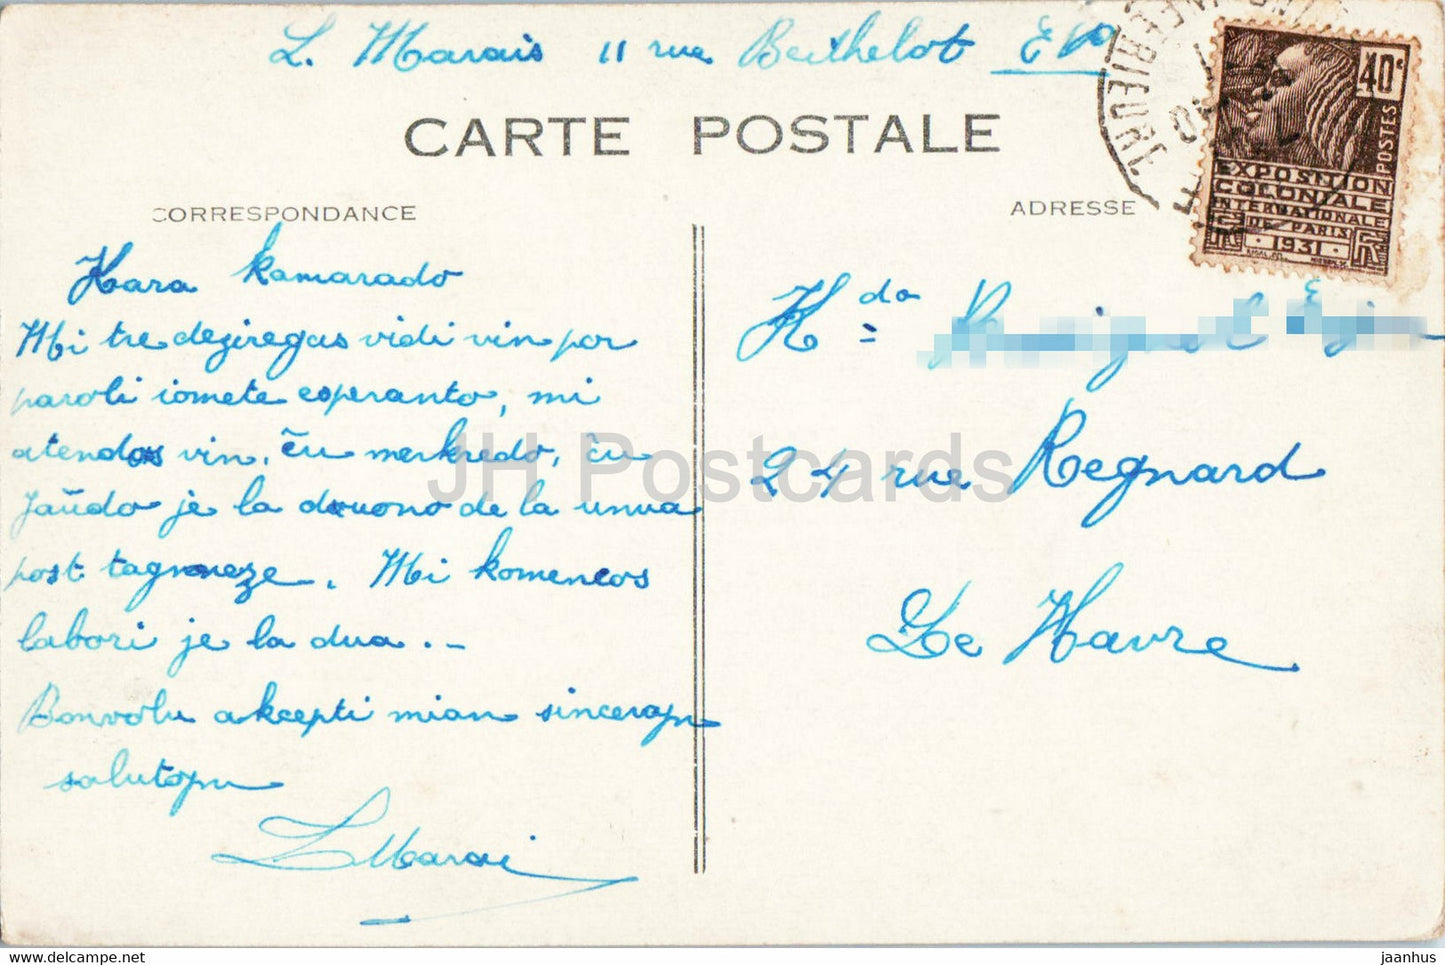 L. Marais 11 rue Berthelot EV
CARTE POSTALE
40c
POSTES
EXPOSITION
COLONIALE
INTERNATIONALE
DE PARIS
1931
RF
CORRESPONDANCE
ADRESSE
Kara kamarado
Mi tre deziregas vidi vin por
paroli iomete esperanto, mi
atendos vin, ĉu merkredo, ĉu
ĵaŭdo je la duono de la unua
post tagmeze. Mi komencos
labori je la dua. . –
Bonvolu akcepti mian sincerajn
salutojn
LMarai
24 rue Regnard
Le Havre
JH Postcards
www.hippostcard.com
jaanhus